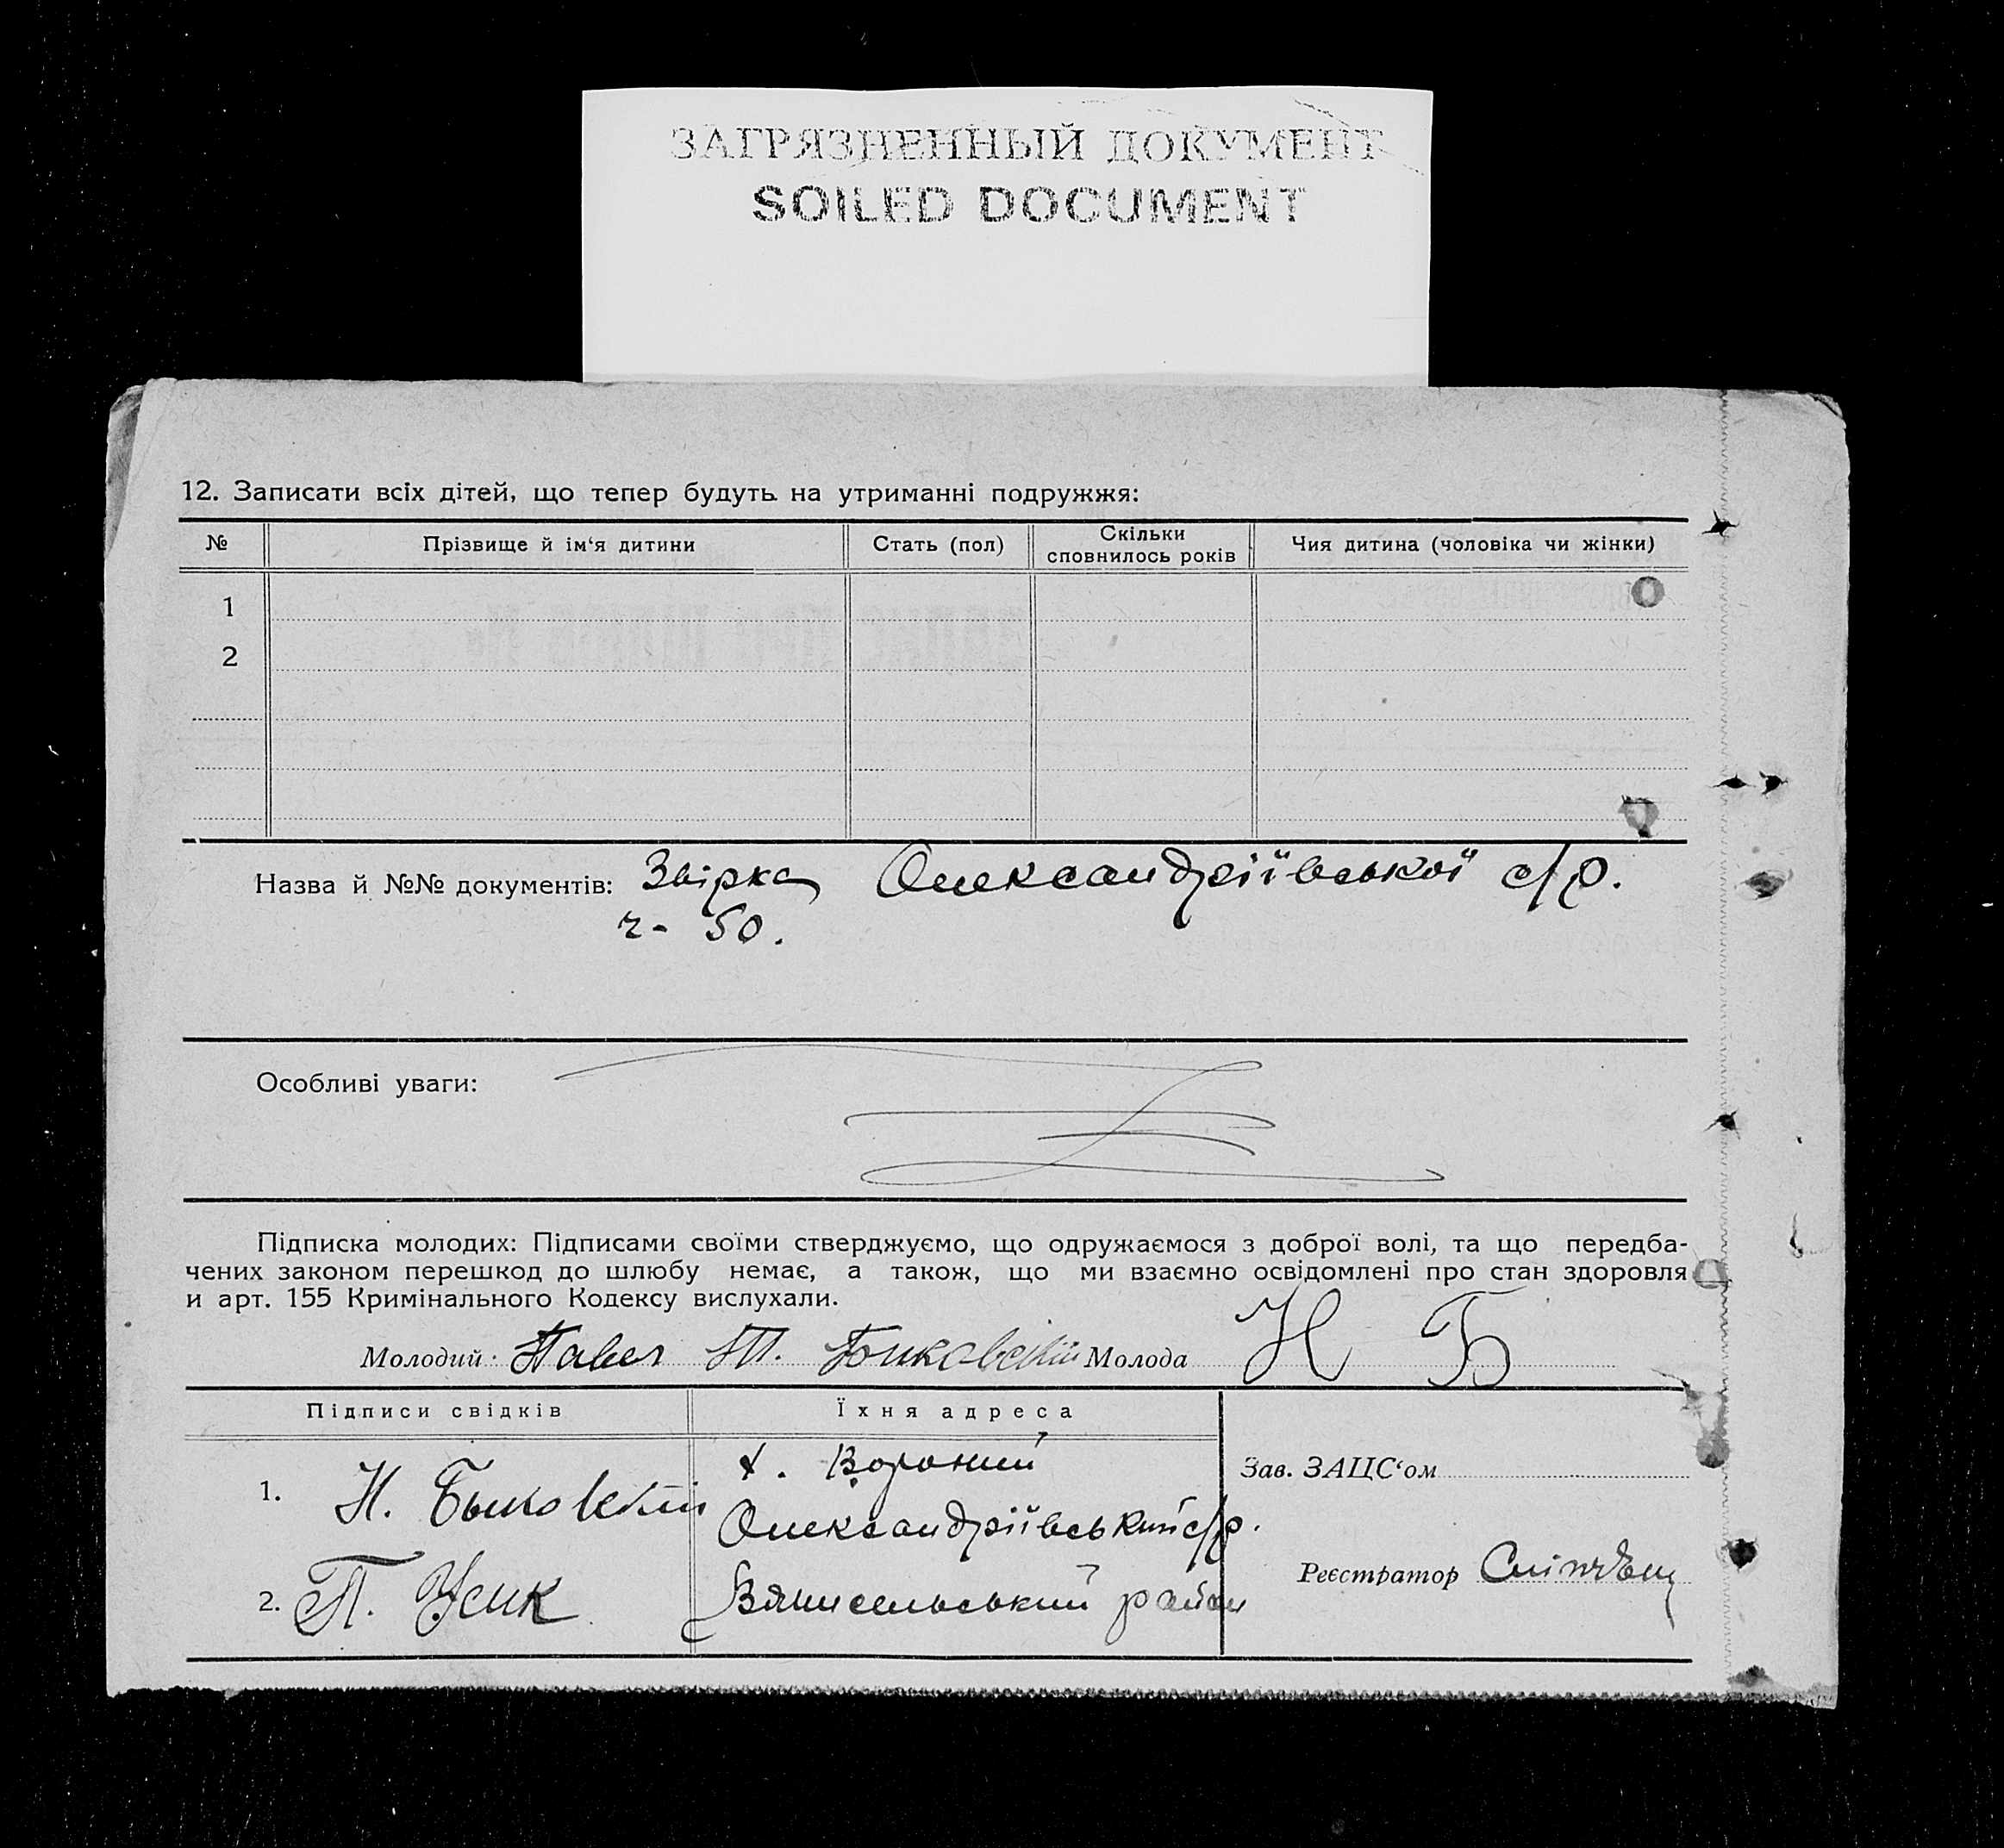 ЗАГРЯЗНЕННЫЙ ДОКУМЕНТ
SOILED DOCUMENT
12. Записати всіх дітей, що тепер будуть на утриманні подружжя:
№ Прізвище й ім‘я дитини Стать (пол) Скільки сповнилось років Чия дитина (чоловіка чи жінки)
1
2
Назва й №№ документів: Звірка Олександріївської с/р.
ч- 50.
Особливі уваги:
Підписка молодих: Підписами своїми стверджуємо, що одружаємося з доброї волі, та що передба-
чених законом перешкод до шлюбу немає, а також, що ми взаємно освідомлені про стан здоровля
и арт. 155 Кримінального Кодексу вислухали.
Молодий Павел Молода Н Б
Підписи свідків Їхня адреса
х. Вороний
Зав. ЗАЦС‘ом
1. Н.
Олександріївський с/р.
Реєстратор
2. П. Усик
район